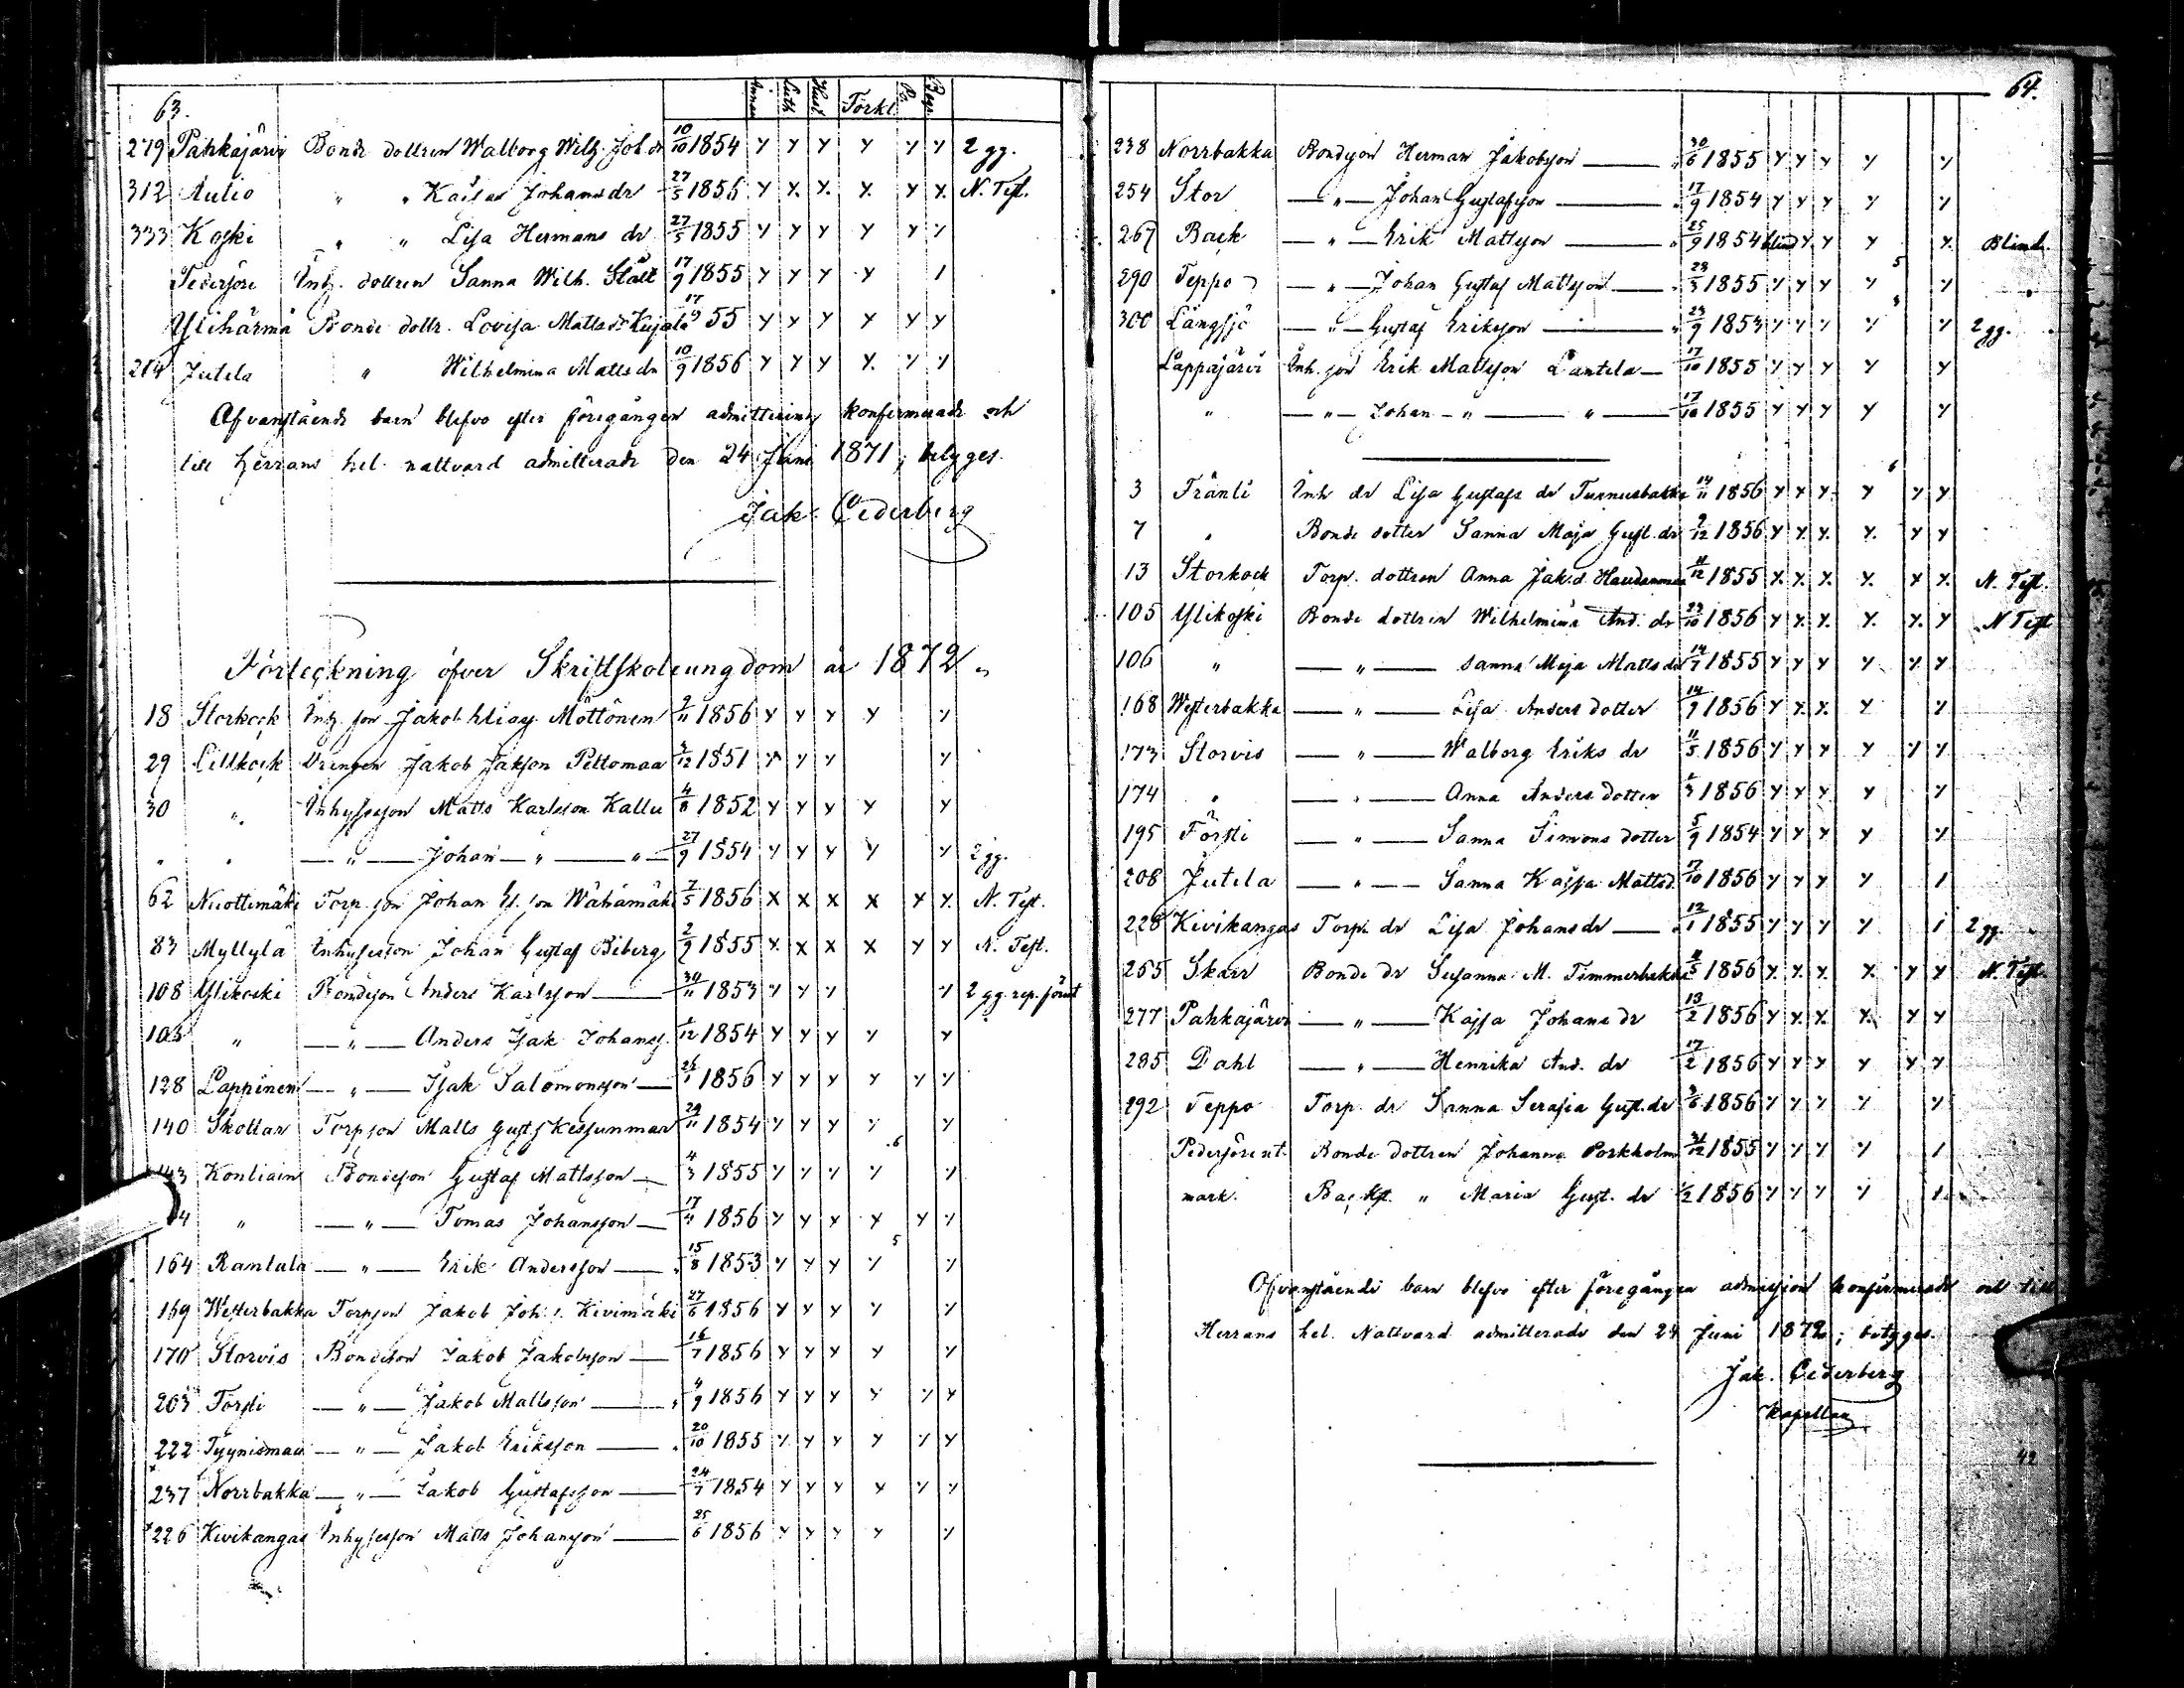 63.
Förkl.
279 Pahkajärvi Bonde dottren Walborg Wilh. Joh. dr 10/10 1854 2 gg.
312 Aulio " " Kajsa Johans dr 27/5 1856 N. Test.
333 Koski " " Lisa Hermans dr 27/5 1855
Pedersöre Inh. dottren Sanna Wilh. Slätt 17/9 1855
Ylihärmä Bonde dottr. Lovisa Matts dr Kujala 17/9 55
Jutila " Wilhelmina Matts dr 10/9 1856
Ofvanstående barn blefvo efter föregången admittering konfirmerade och
till Herrans hel. nattvard admitterade den 24 Juni 1871; betyges.
Jak. Cederberg
Förteckning öfver Skriftskoleungdom år 1872
18 Storkock Inh. son Jakob Eliass. Möttönen 9/11 1856
29 Lillkock Drengen Jakob Jakson Peltomaa 3/12 1851
30 " Inhysesson Matts Karlsson Kallu 4/8 1852
" " — " — Johan — " — " — 27/9 1854 2 gg.
62 Niiottimäki Torp. son Johan H. son Wähämäki 7/5 1856 N. Test.
83 Myllylä Inhysesson Johan Gustaf Biberg 2/9 1855 N. Test.
108 Ylikoski Bondeson Anders Karlsson — 30/11 1853 2 gg. rep. först
103 " — " — Anders Isak Johanss. 1/12 1854
128 Lappinen — " — Isak Salomonsson — 1856
140 Skottar Torpson Matts Gustfs Kessunmaa 29/11 1854
143 Konliain Bondeson Gustaf Mattsson — 4/3 1855 6
" — " — Tomas Johansson — 17/4 1856
164 Rantala — " — Erik Andersson — 15/8 1853 5
169 Westerbakka Torpson Jakob Joh. s. Kivimäki 27/6 1856
170 Storvis Bondeson Jakob Jakobsson — 16/7 1856
203 Försti — " — Jakob Mattsson — 4/9 1856
222 Tyynismaa — " — Jakob Eriksson — 20/10 1855
237 Norrbakka — " — Jakob Gustafsson — 24/7 1854
226 Kivikangas Inhysesson Matts Johansson — 25/6 1856
64.
238 Norrbakka Bondson Herman Jakobsson — 30/6 1855
254 Stor — " — Johan Gustafsson — 17/9 1854
267 Back — " — Erik Mattsson — 25/9 1854 blind Blind.
290 Teppo — " — Johan Gustaf Mattsson — 23/3 1855 5
300 Långsjö — " — Gustaf Eriksson — 23/9 1853 2 gg.
Lappajärvi Inh. son Erik Mattsson Lantela — 17/10 1855
" — " — Johan — " — " — 17/10 1855
3 Tränli Inh. dr Lisa Gustafs dr Tunnusbakka 14/11 1856 6
7 " Bonde dotter Sanna Maja Gust. dr 9/12 1856
13 Storkock Torp. dottren Anna Jak. d. Haudanmaa 11/12 1855 N. Test.
105 Ylikoski Bonde dottren Wilhelmina And. dr 23/10 1856 N Test
106 " — " — Sanna Maja Matts dr 14/7 1855
168 Westerbakka — " — Lisa Anders dotter 14/9 1856
173 Storvis — " — Walborg Eriks dr 11/5 1856
174 " — " — Anna Anders dotter 1856
195 Försti — " — Sanna Simons dotter 5/9 1854
208 Jutila — " — Sanna Kajsa Mattsd. 17/10 1856
228 Kivikangas Torp. dr Lisa Johans dr — 13/1 1855 2 gg.
265 Skarr Bonde dr Susanna M. Timmerbakka 1856 N. Test.
277 Pahkajärvi — " — Kajsa Johans dr 13/2 1856
285 Dahl — " — Henrika And. dr 17/2 1856
292 Teppo Torp. dr Sanna Serafia Gust. dr 1856
Pedersöre nt. Bonde dottren Johanna Porkholm 31/12 1855
mark. " Maria Gust. dr 1/2 1856
Ofvanstående barn blefvo efter föregången admission konfirmerade och till
Herrans hel. Nattvard admitterade den 24 Juni 1872; betyges.
Jak. Cederberg
Kapellan
42